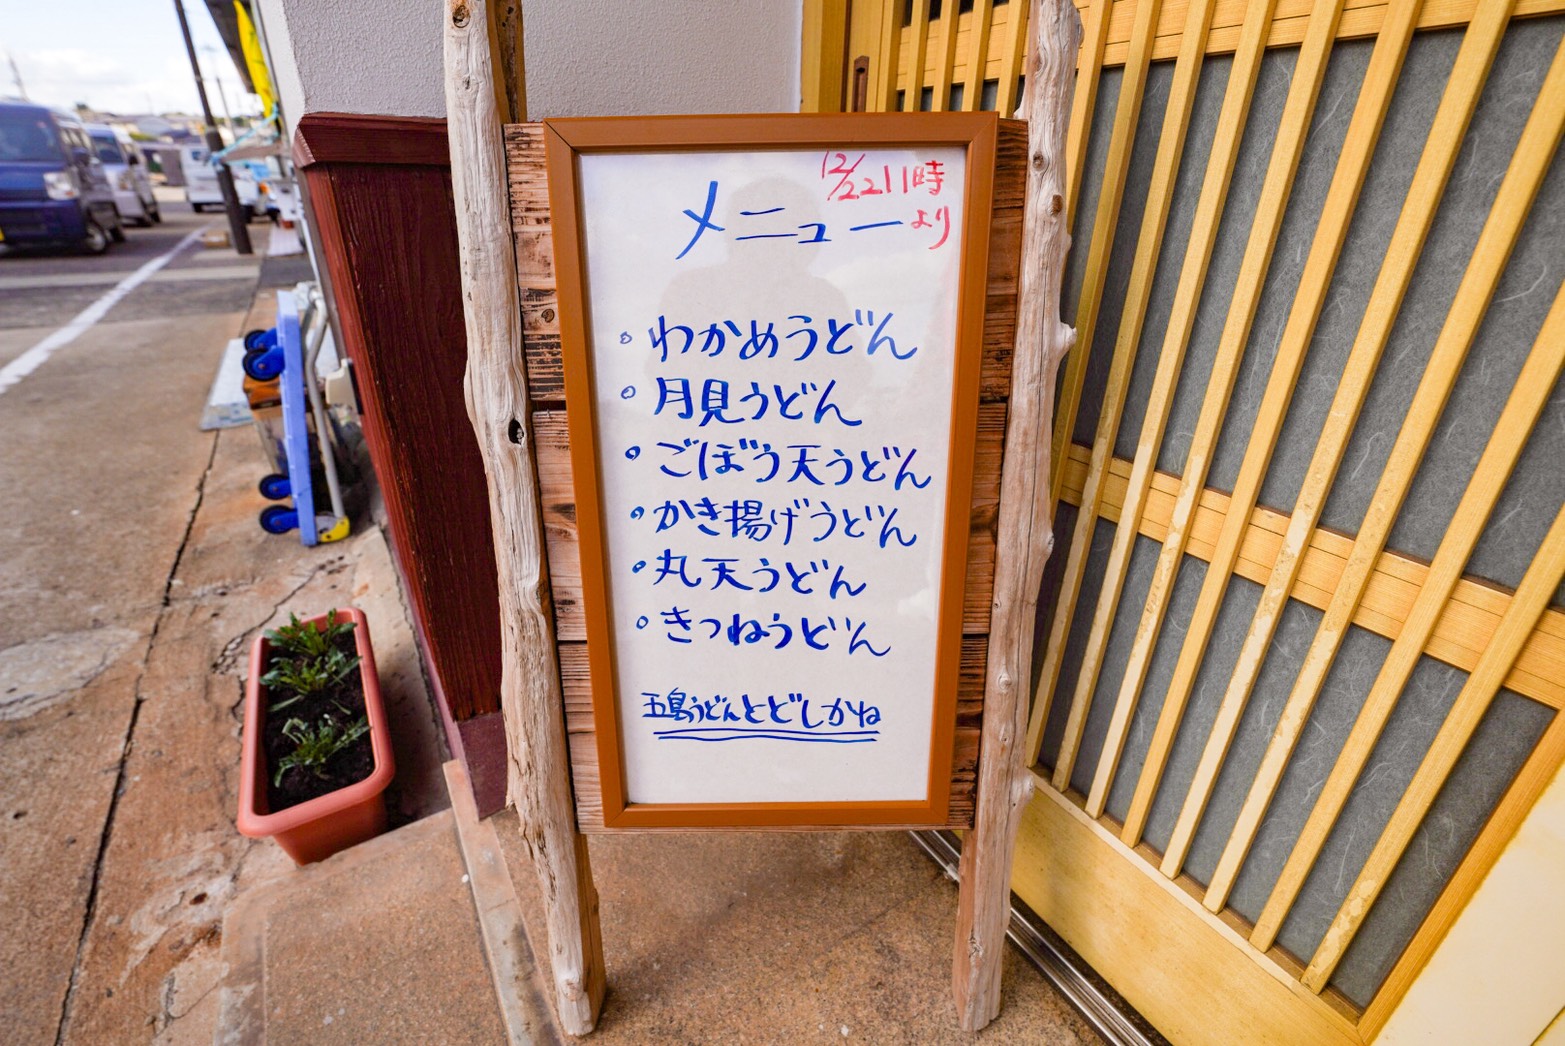 12/22 11時
より
メニュー
・わかめうどん
・月見うどん
・ごぼう天うどん
・かき揚げうどん
・丸天うどん
・きつねうどん
五島うどんとどしかね